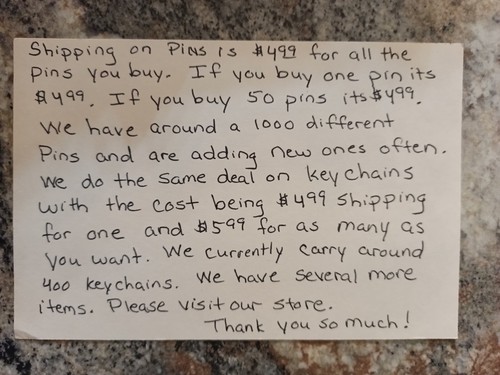 Shipping on Pins is $499 for all the
pins you buy. If you buy one pin its
$499. If you buy 50 pins its $499.
We have around a 1000 different
Pins and are adding new ones often.
We do the same deal on key chains
with the cost being $499 shipping
for one and $599 for as many as
you want. We currently carry around
400 keychains. We have several more
items. Please visit our store.
Thank you so much!